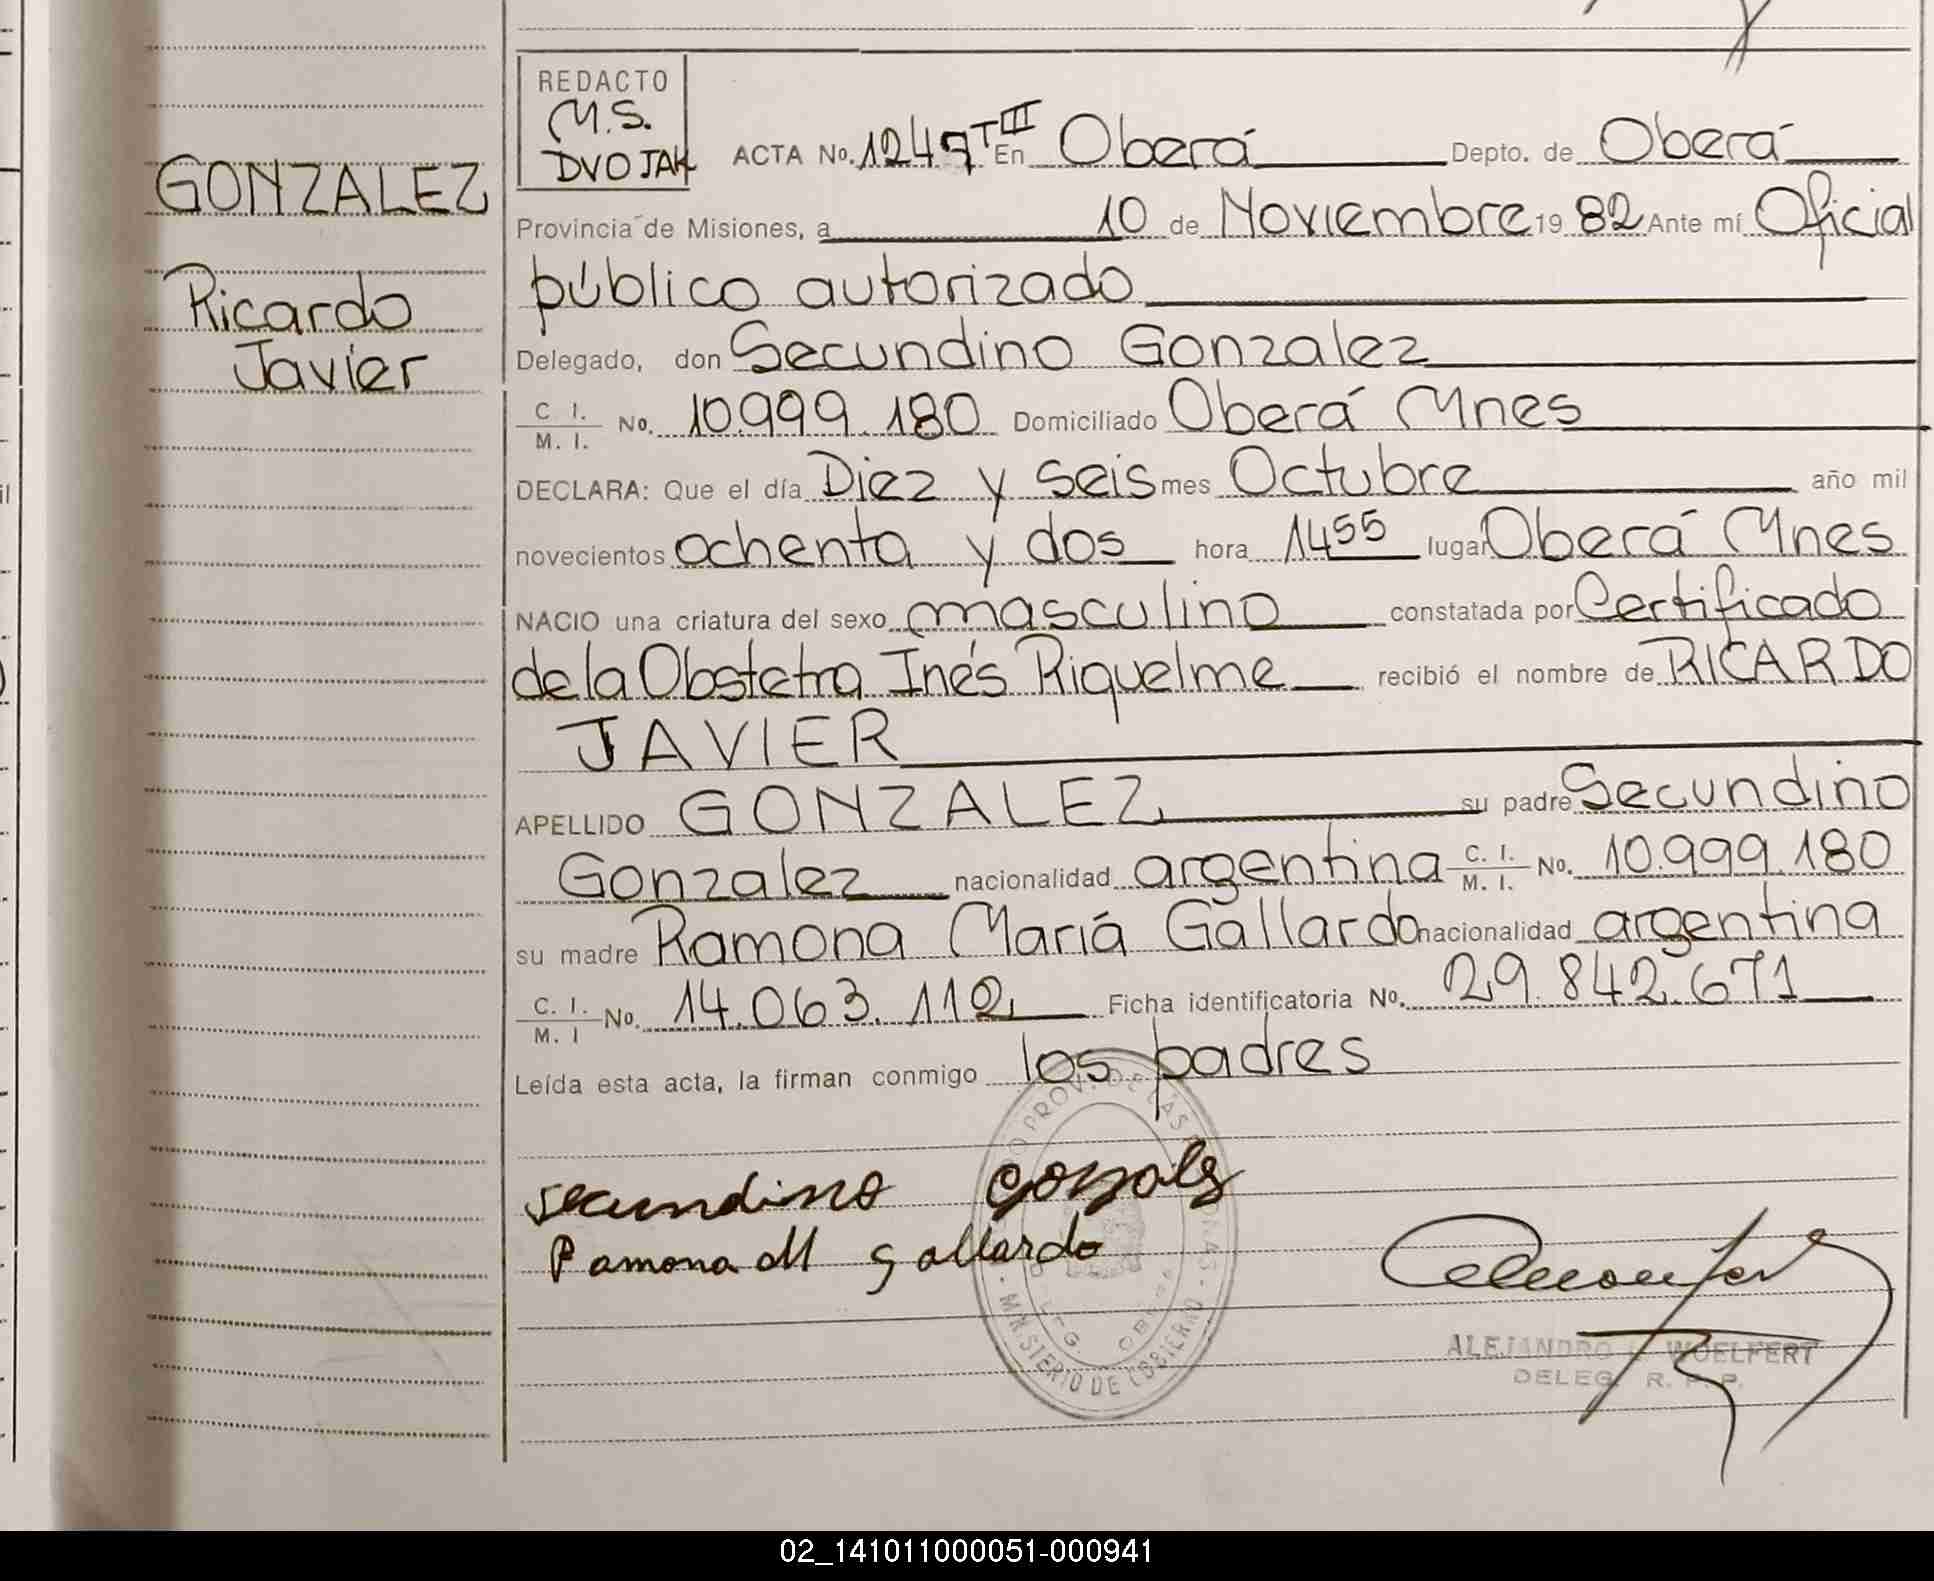 GONZALEZ
Ricardo
Javier
REDACTO
M.S.
DVOJAK
ACTA No. 1247 T III En Oberá Depto. de Oberá
Provincia de Misiones, a 10 de Noviembre 19 82 Ante mí Oficial
público autorizado
Delegado, don Secundino Gonzalez
C. I. / M. I. No. 10.999.180 Domiciliado Oberá Mnes
DECLARA: Que el día Diez y seis mes Octubre año mil
novecientos ochenta y dos hora 14 55 lugar Oberá Mnes
NACIO una criatura del sexo masculino constatada por Certificado
de la Obstetra Inés Riquelme recibió el nombre de RICARDO
JAVIER
APELLIDO GONZALEZ su padre Secundino
Gonzalez nacionalidad argentina C. I. / M. I. No. 10.999.180
su madre Ramona Mariá Gallardo nacionalidad argentina
C. I. / M. I No. 14.063.112 Ficha identificatoria No. 29.842.671
Leída esta acta, la firman conmigo los padres
secundino gonzalez
Ramona M gallardo
PROV. DE LAS
MINISTERIO DE GOBIERNO
ALEJANDRO WOELFERT
DELEG. R. P. P.
02_141011000051-000941